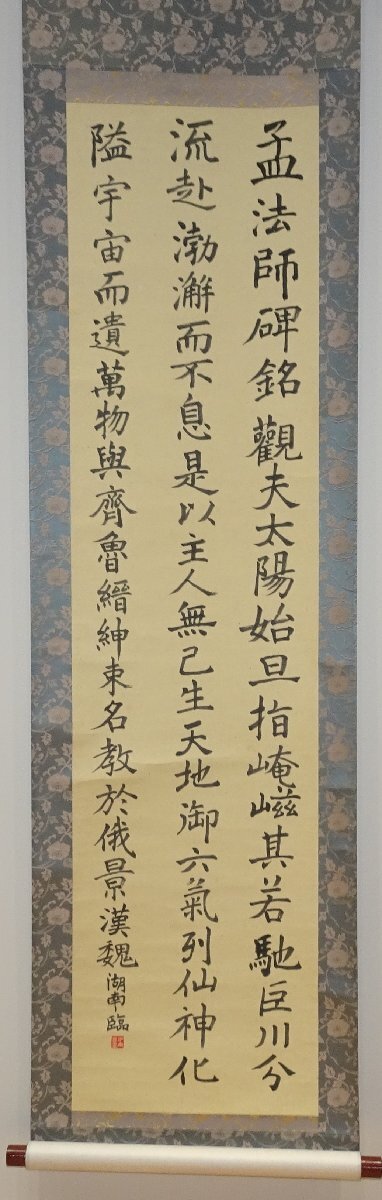 孟法師碑銘觀夫太陽始旦指崦嵫其若馳巨川分
流赴渤澥而不息是以主人無己生天地御六氣列仙神化
隘宇宙而遺萬物與齊魯縉紳束名教於俄景漢魏
湖南臨